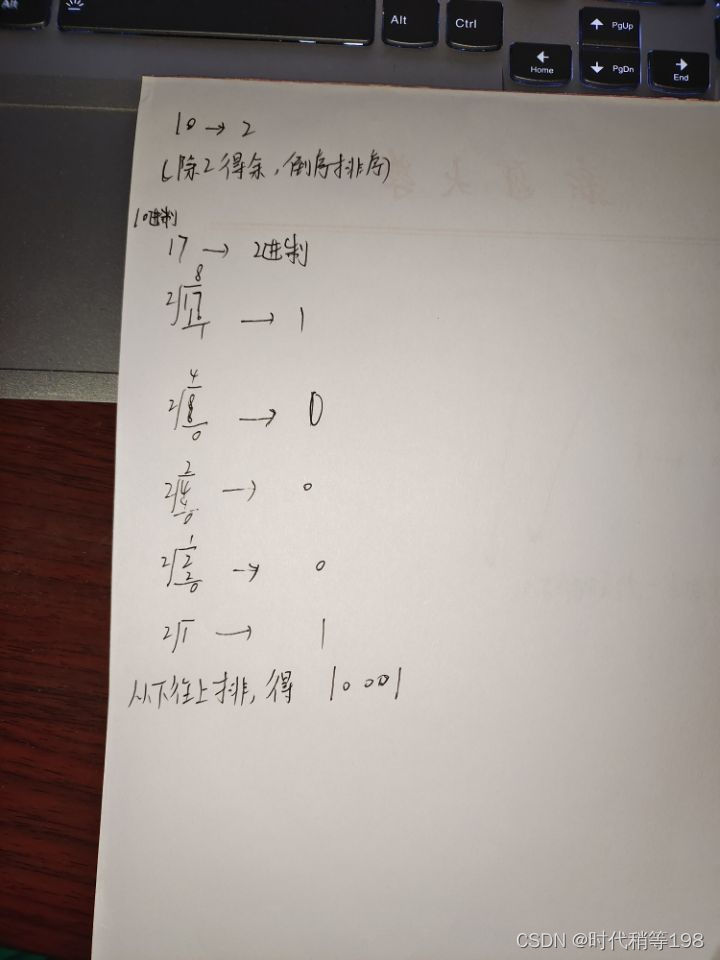 Alt
Alt
Ctrl
PgUp
Home
PgDn
End
10→2
(除2得余,倒序排序)
10进制
17→2进制
8
2√17 → 1
16
1
4
2√8 → 0
8
0
2
2√4 → 0
4
0
1
2√2 → 0
2
0
2√1 → 1
从下往上排,得 10001
CSDN @时代稍等198